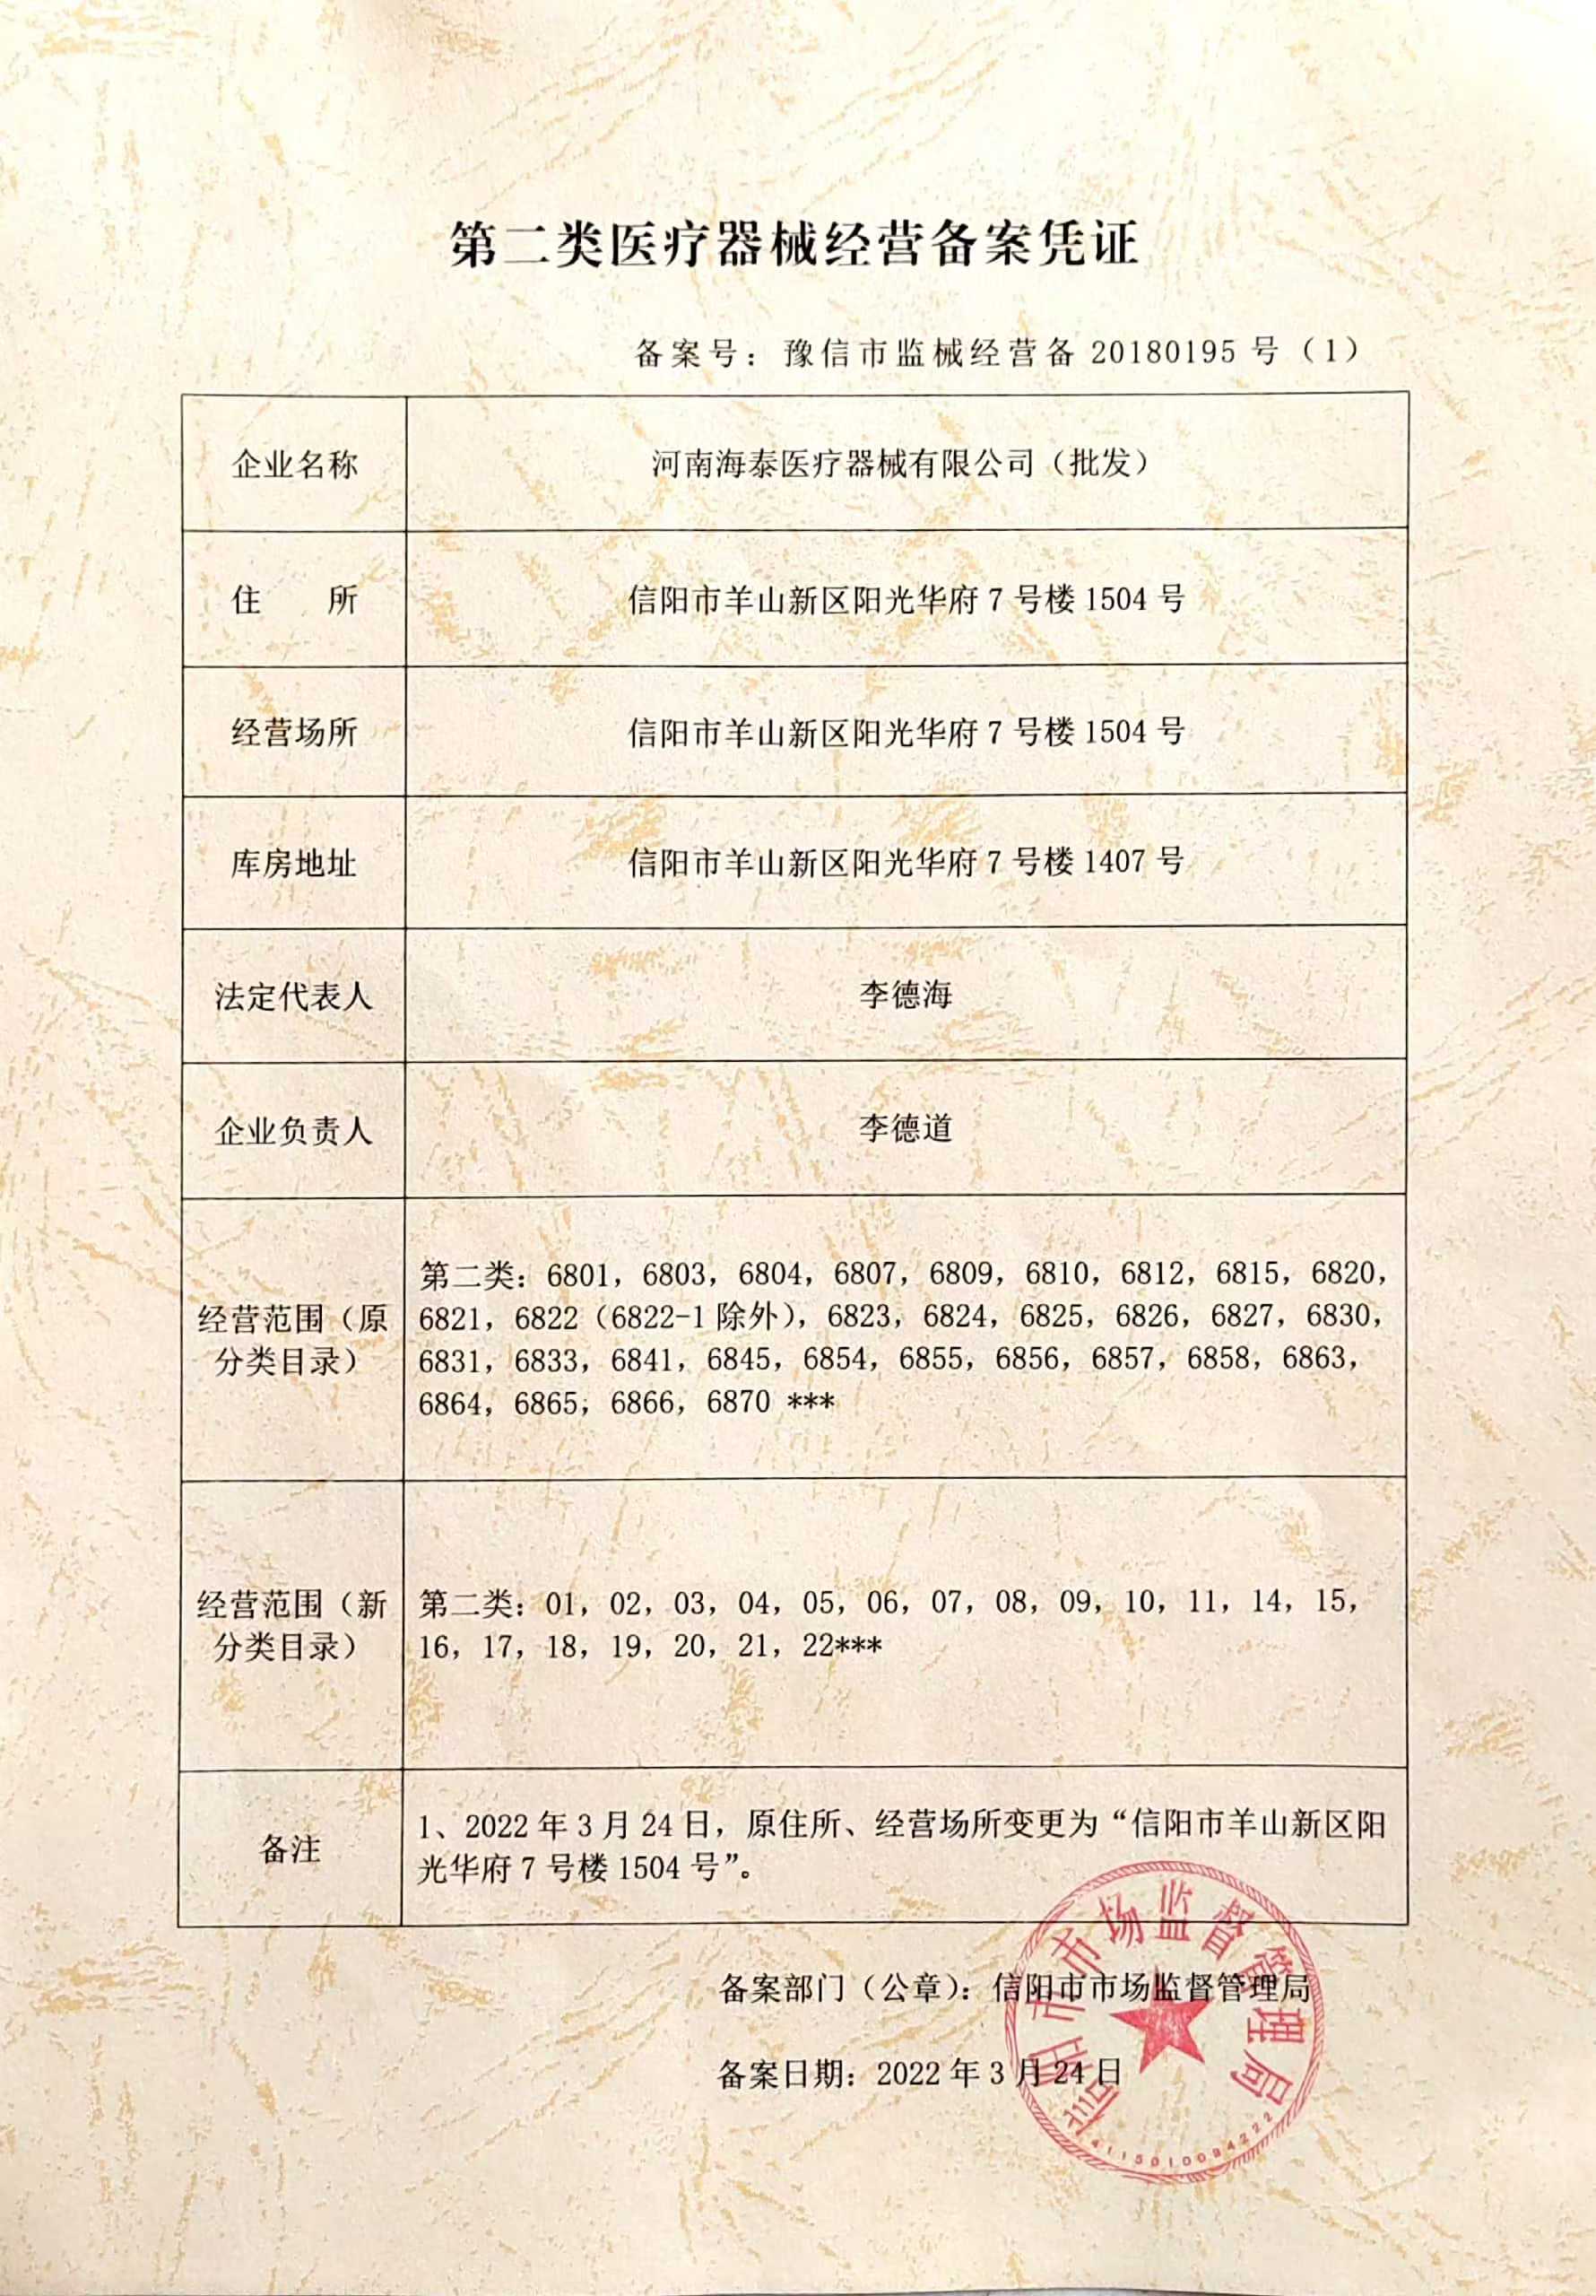 第二类医疗器械经营备案凭证
备案号：豫信市监械经营备 20180195 号（1）
企业名称
河南海泰医疗器械有限公司（批发）
住 所
信阳市羊山新区阳光华府 7 号楼 1504 号
经营场所
信阳市羊山新区阳光华府 7 号楼 1504 号
库房地址
信阳市羊山新区阳光华府 7 号楼 1407 号
法定代表人
李德海
企业负责人
李德道
经营范围（原
分类目录）
第二类：6801，6803，6804，6807，6809，6810，6812，6815，6820，
6821，6822（6822-1 除外），6823，6824，6825，6826，6827，6830，
6831，6833，6841，6845，6854，6855，6856，6857，6858，6863，
6864，6865，6866，6870 ***
经营范围（新
分类目录）
第二类：01，02，03，04，05，06，07，08，09，10，11，14，15，
16，17，18，19，20，21，22***
备注
1、2022 年 3 月 24 日，原住所、经营场所变更为“信阳市羊山新区阳
光华府 7 号楼 1504 号”。
备案部门（公章）：信阳市市场监督管理局
备案日期：2022 年 3 月 24 日
信阳市市场监督管理局
4115010094222